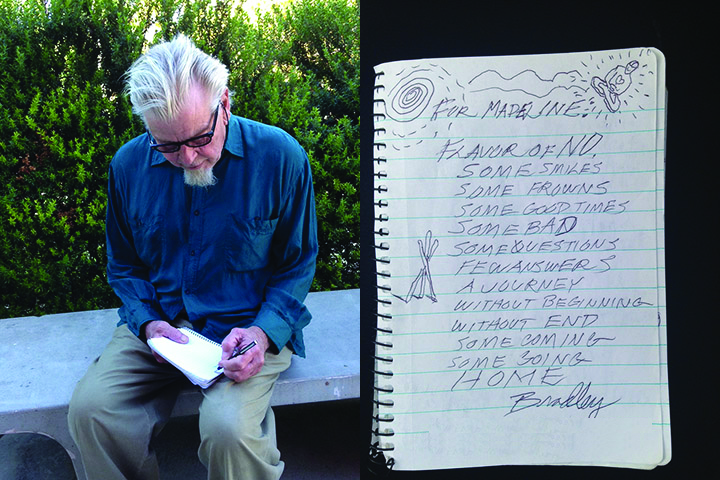 FOR MADELINE:
FLAVOR OF NO,
SOME SMILES
SOME FROWNS
SOME GOOD TIMES
SOME BAD
SOME QUESTIONS
FEW ANSWERS
A JOURNEY
WITHOUT BEGINNING
WITHOUT END
SOME COMING
SOME GOING
HOME
Bradley